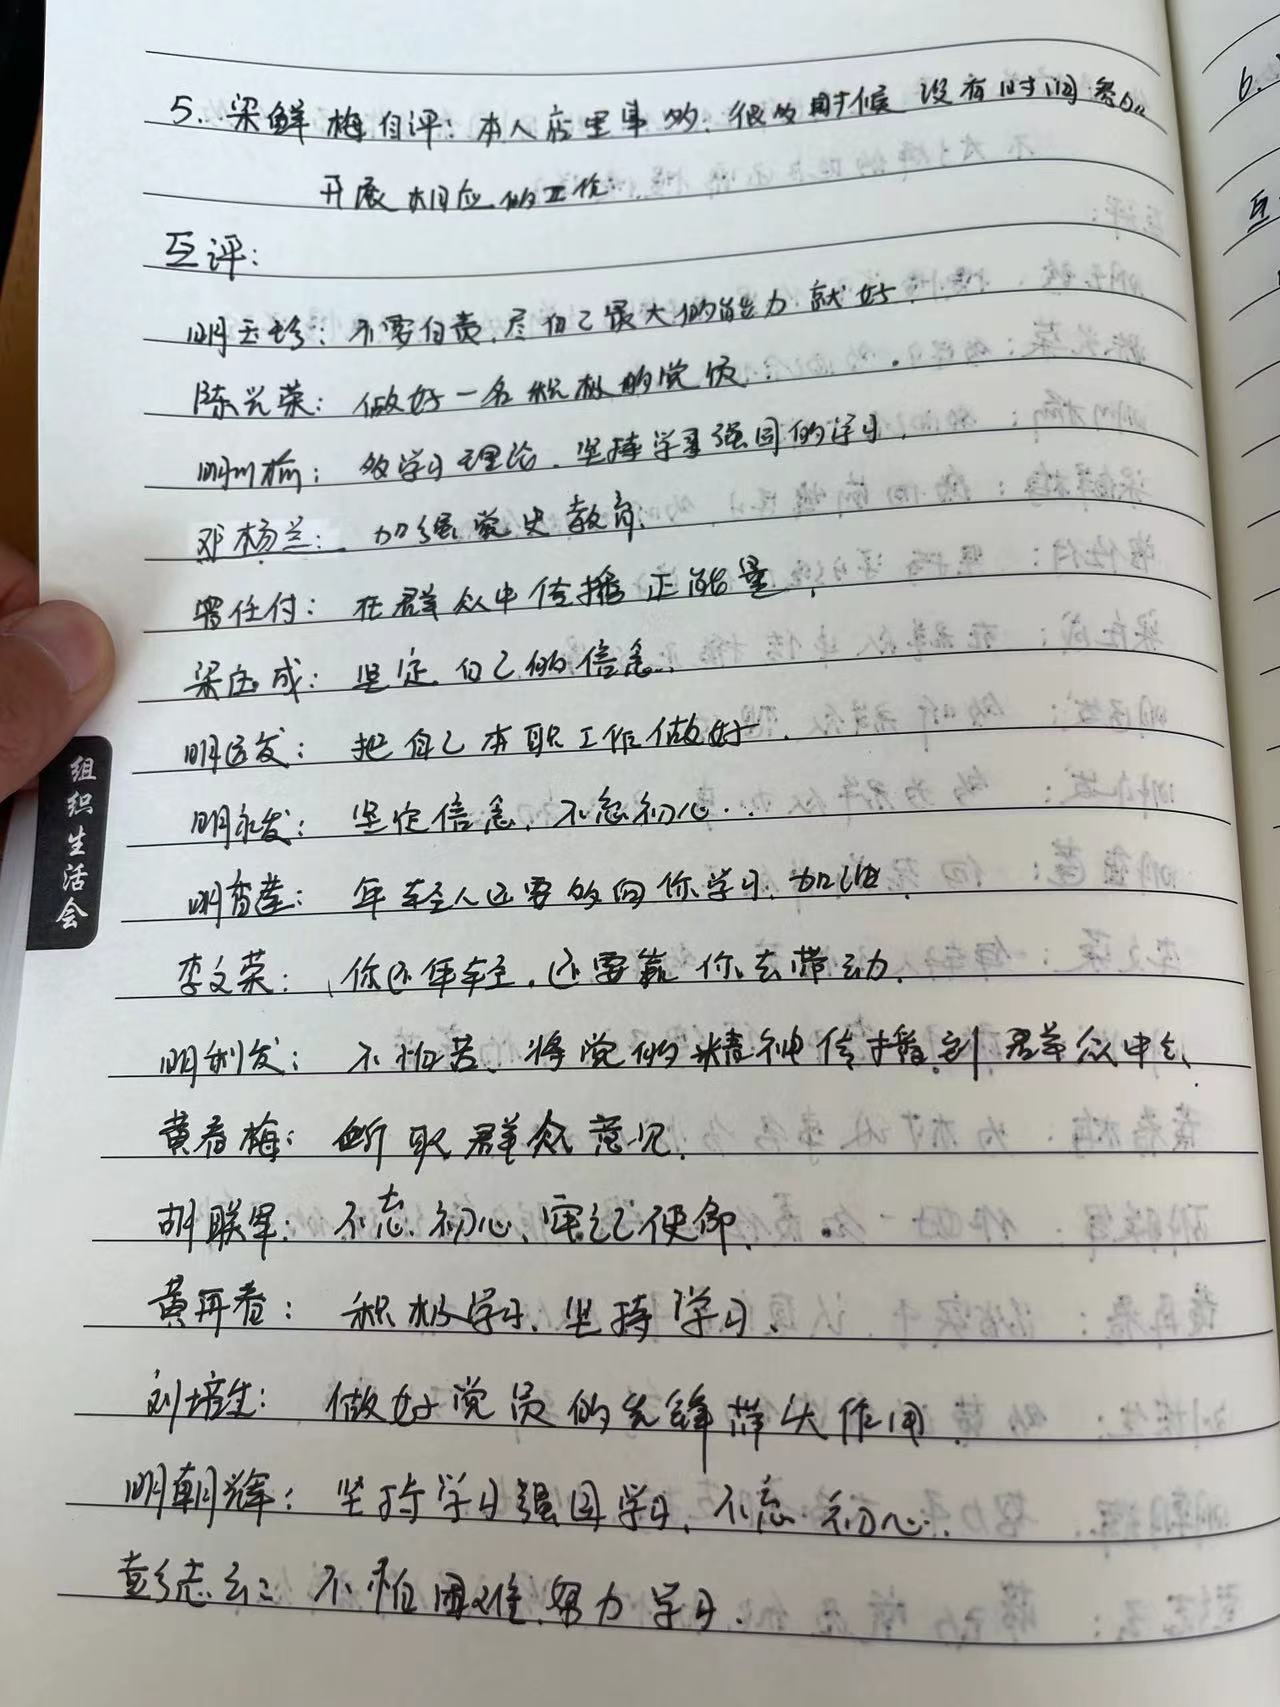 5. 梁鲜梅自评: 本人店里事多, 很多时候没有时间参加
开展相应的工作.
互评:
明玉珍: 不要自责, 尽自己最大的能力就好.
陈兴荣: 做好一名积极的党员.
明川楠: 多学习理论, 坚持学习强国的学习.
邓杨兰: 加强党史教育.
曾任付: 在群众中传播正能量,
梁应成: 坚定自己的信念.
明远发: 把自己本职工作做好.
明永发: 坚定信念, 不忘初心.
明育莲: 年轻人还要多向你学习, 加油.
李文荣: 你还年轻, 还要靠你去带动.
明利发: 不怕苦, 将党的精神传播到群众中去,
黄春梅: 听取群众意见.
胡联军: 不忘初心, 牢记使命.
黄再春: 积极学习, 坚持学习.
刘培生: 做好党员的先锋带头作用.
明朝辉: 坚持学习强国学习, 不忘初心.
彭志云: 不怕困难, 努力学习.
组织生活会
6.
互